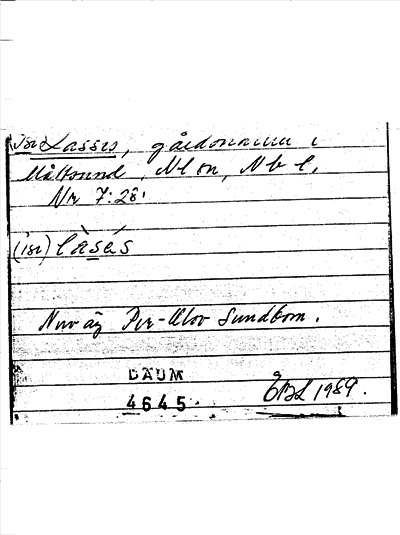 (isr) Lasses, gårdonamn i
Måttsund, Nl sn, Nb l,
Nr 7:28.
(isr) làsás
Nuv äg Per-Olov Sundbom.
DAUM
4645
ÖBL 1989.